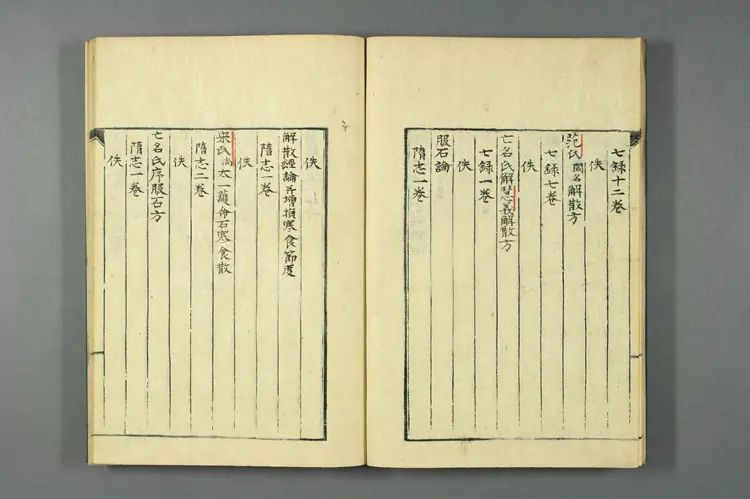 七録十二巻
佚
范氏闕名解散方
七録七巻
佚
亡名氏解慧義解散方
七録一巻
佚
服石論
隋志一巻
佚
解散經論并増損寒食節度
隋志一巻
佚
宋氏尚太一護命石寒食散
隋志二巻
佚
亡名氏序服石方
隋志一巻
佚